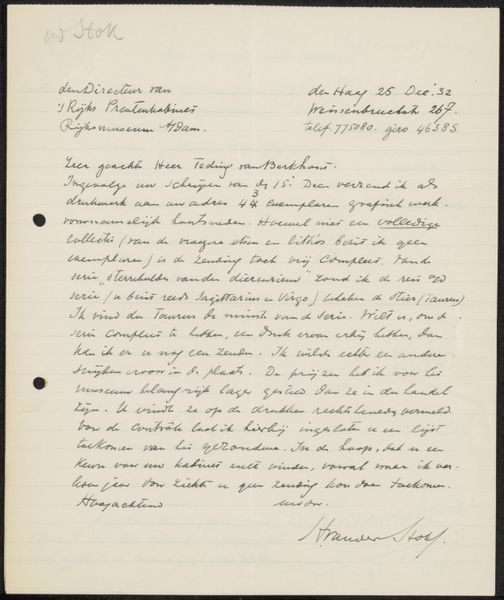 vd Stok
den Directeur van
's Rijks Prentenkabinet
Rijksmuseum A/Dam.
den Haag 25 Dec '32
Weissenbruchstr 267.
telef. 775080. giro 46385
Zeer geachte Heer Teding van Berkhout.
Ingevolge uw schrijven van dg 15 Dec verzend ik als
drukwerk aan uw adres 43 exemplaren grafisch werk.
voornamelijk houtsneden. Hoewel niet een volledige
collectie (van de vroegere etsen en litho's bezit ik geen
exemplaren) is de zending toch vrij compleet. Van de
serie "sterrebeelden van den dierenriem" zond ik de
serie (u bezit reeds Sagittarius en Virgo) behalve de stier (Taurus)
Ik vind den Taurus de minste van de serie. Wilt u, om de
serie compleet te hebben, een druk ervan erbij hebben, dan
kan ik er u nog een zenden. Ik wilde echter een andere
snijden voor in de plaats. De prijzen heb ik voor het
museum belangrijk lager gesteld dan ze in den handel
zijn. U vindt ze op de drukken rechts beneden vermeld.
Voor de contrôle laat ik hierbij ingesloten u een lijst
toekomen van het gezondene. In de hoop, dat u een
keus voor uw kabinet zult vinden, vooral waar ik
jaar door ziekte u geen zending kon doen toekomen.
Hoogachtend
uw dw.
H. van der Stok.